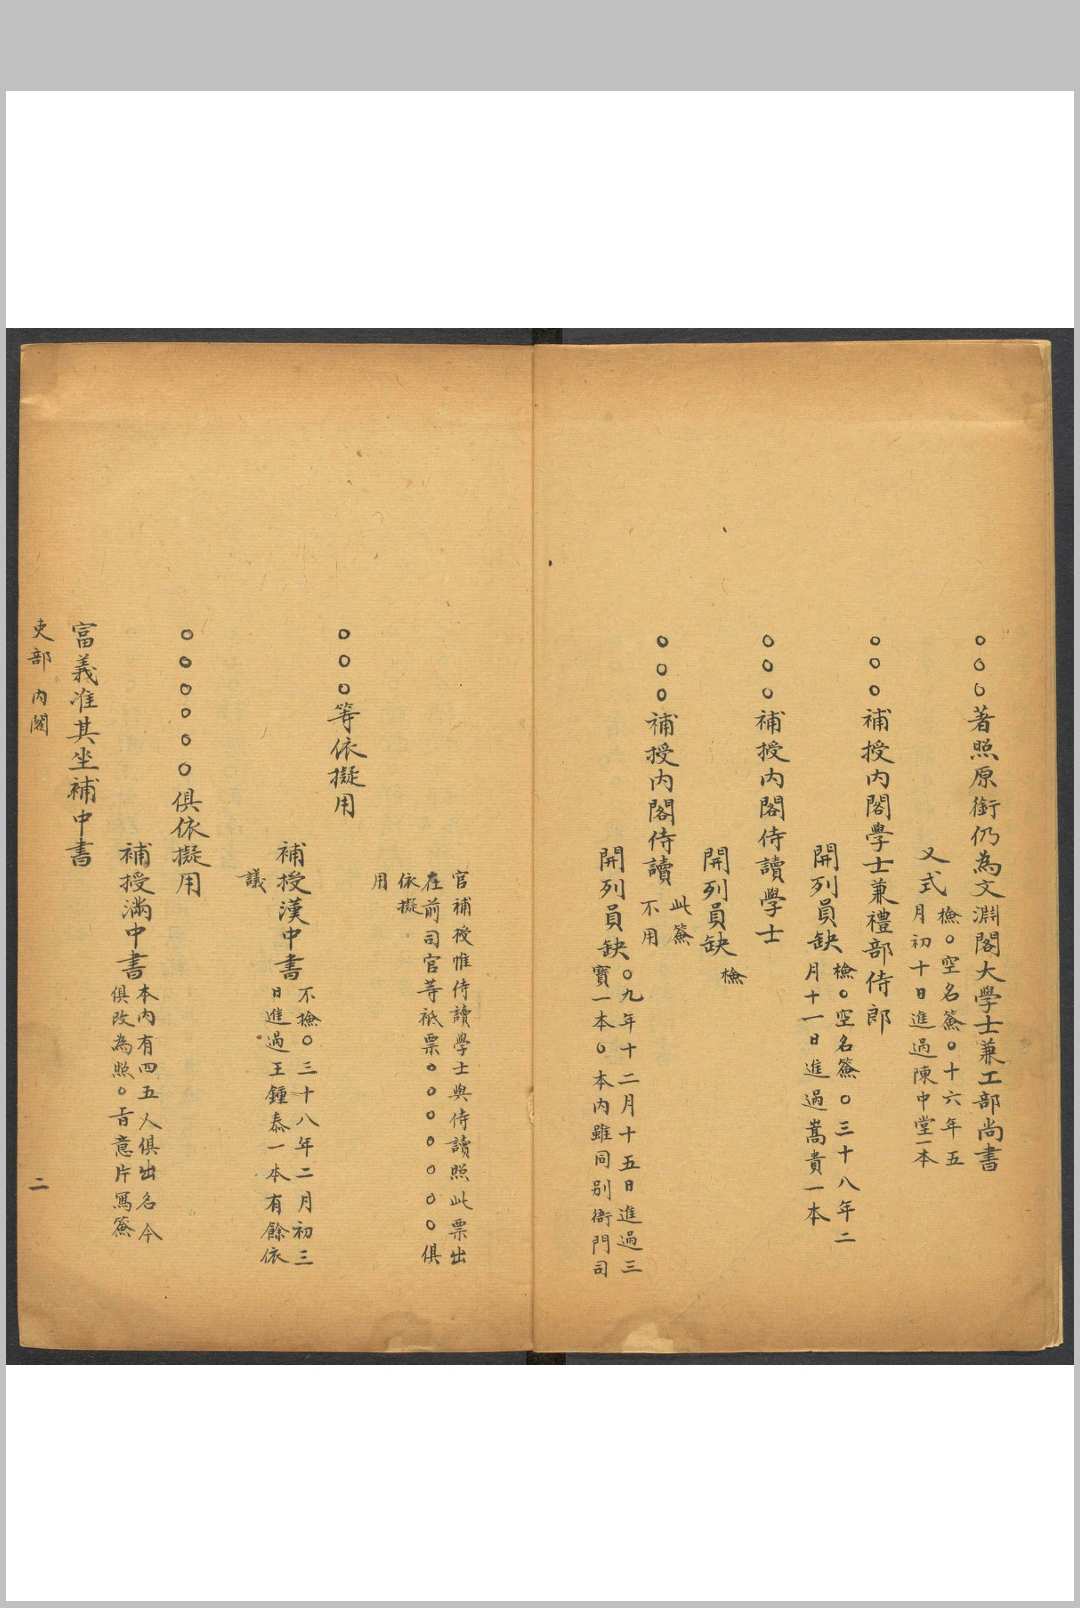 ○○○著照原銜仍為文淵閣大學士兼工部尚書
又式
檢○空名簽○十六年五
月初十日進過陳中堂一本
○○○補授內閣學士兼禮部侍郎
開列員缺
檢○空名簽○三十八年二
月十一日進過嵩貴一本
○○○補授內閣侍讀學士
開列員缺
檢
○○○補授內閣侍讀
此簽
不用
開列員缺
○九年十二月十五日進過三
寶一本○本內雖同別衙門司
官補授惟侍讀學士與侍讀照此票出
在前司官等祇票○○○○○○○俱
依擬
用
○○○等依擬用
補授漢中書
不檢○三十八年二月初三
日進過王鍾泰一本有餘依
議
○○○○○○俱依擬用
補授滿中書
本內有四五人俱出名今
俱改為照○旨意片寫簽
富義准其坐補中書
吏部 內閣
二